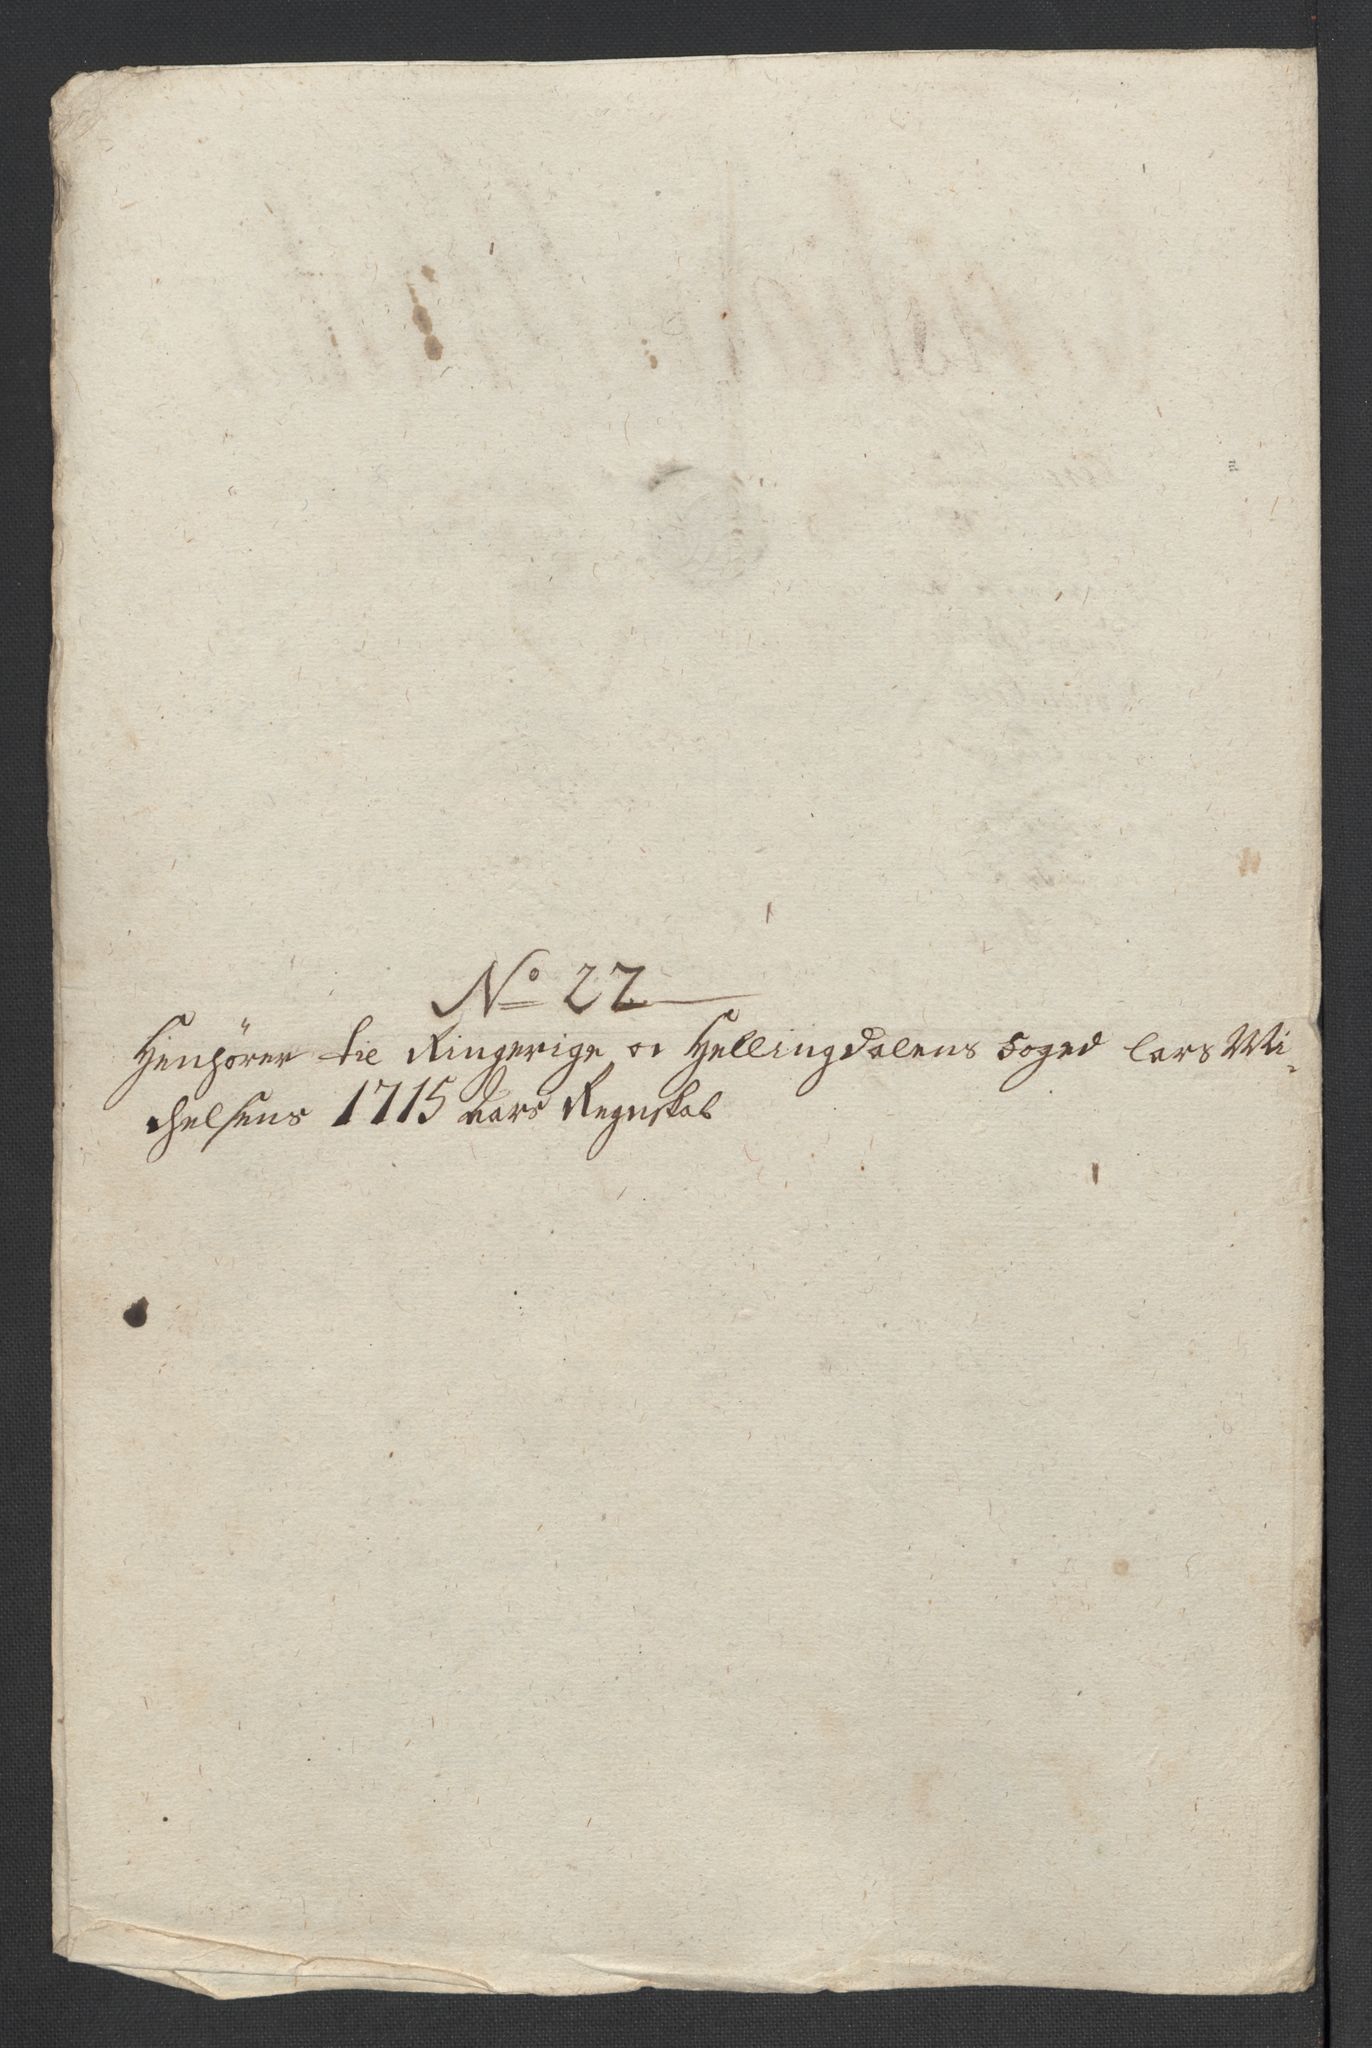 No 22
Henhörer til Ringerige og Hellingdalens foged Lars Mi-
chelsens 1715 Aars Regnskab